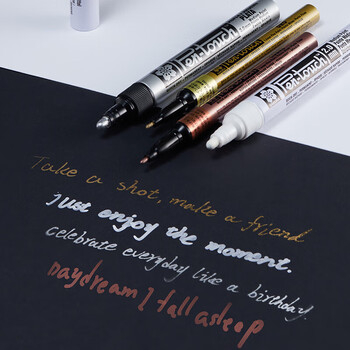 Pen-touch
Pen-touch
2.0
Take a shot, make a friend
Just enjoy the moment.
celebrate everyday like a birthday.
Daydream I fall asleep